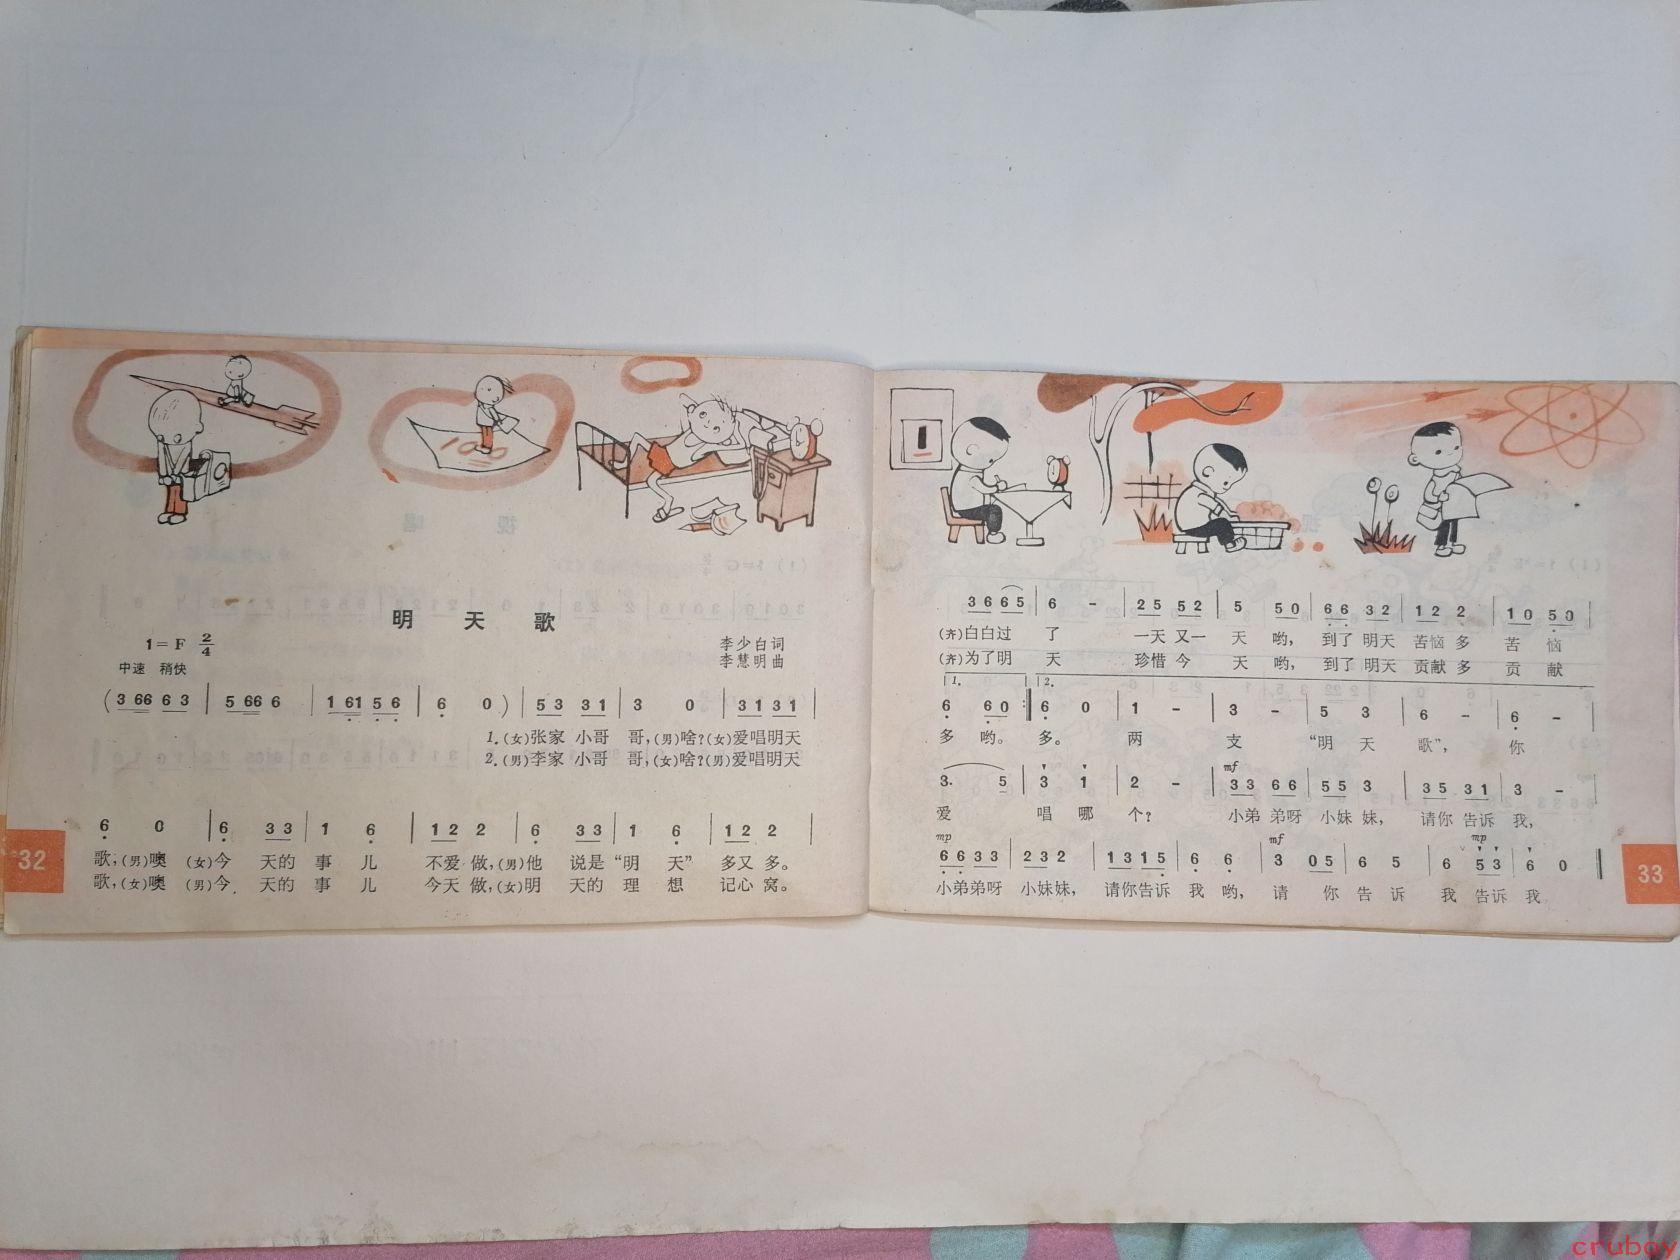 100
明天歌
1=F 2/4
李少白词
中速 稍快
李慧明曲
(3 66 6 3 | 5 66 6 | 1 61 5 6 | 6 0 ) | 5 3 3 1 | 3 0 | 3 1 3 1 |
1.(女)张家 小哥 哥,(男)啥?(女)爱唱明天
2.(男)李家 小哥 哥,(女)啥?(男)爱唱明天
6 0 | 6 3 3 | 1 6 | 1 2 2 | 6 3 3 | 1 6 | 1 2 2 |
歌,(男)噢 (女)今 天的 事 儿 不爱 做,(男)他 说是 “明 天” 多又 多。
歌,(女)噢 (男)今 天的 事 儿 今天 做,(女)明 天的 理 想 记心 窝。
32
1
3 6 6 5 | 6 - | 2 5 5 2 | 5 5 0 | 6 6 3 2 | 1 2 2 | 1 0 5 0 |
(齐)白白过 了 一天 又一 天 哟, 到了 明天 苦恼 多 苦 恼
(齐)为了明 天 珍惜 今 天 哟, 到了 明天 贡献 多 贡 献
1. 2.
6 6 0 :| 6 0 | 1 - | 3 - | 5 3 | 6 - | 6 - |
多 哟。 多。 两 支 “明 天 歌”, 你
mf
3. 5 | 3 1 | 2 - | 3 3 6 6 | 5 5 3 | 3 5 3 1 | 3 - |
爱 唱 哪 个? 小弟 弟呀 小妹 妹, 请你 告诉 我,
mp mf mp
6 6 3 3 | 2 3 2 | 1 3 1 5 | 6 6 | 3 0 5 | 6 5 | 6 5 3 | 6 0 ‖
小弟弟呀 小妹妹, 请你告诉 我 哟, 请 你 告 诉 我 告诉 我
33
cruboy